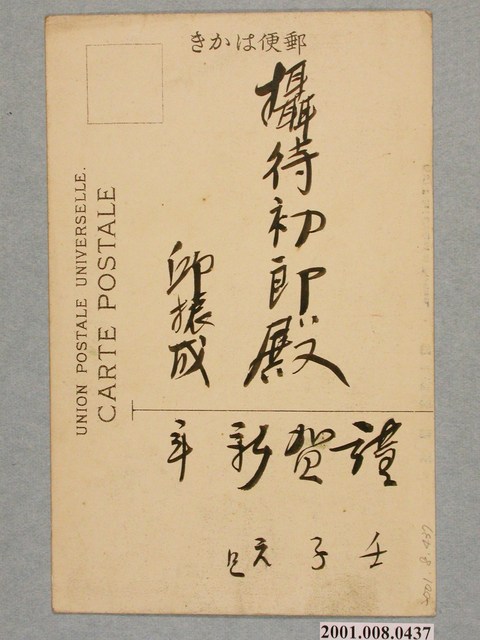 郵便はかき
攝待初郎殿
邱振成
謹賀新年
壬子元旦
UNION POSTALE UNIVERSELLE.
CARTE POSTALE
2001.8.437
2001.008.0437